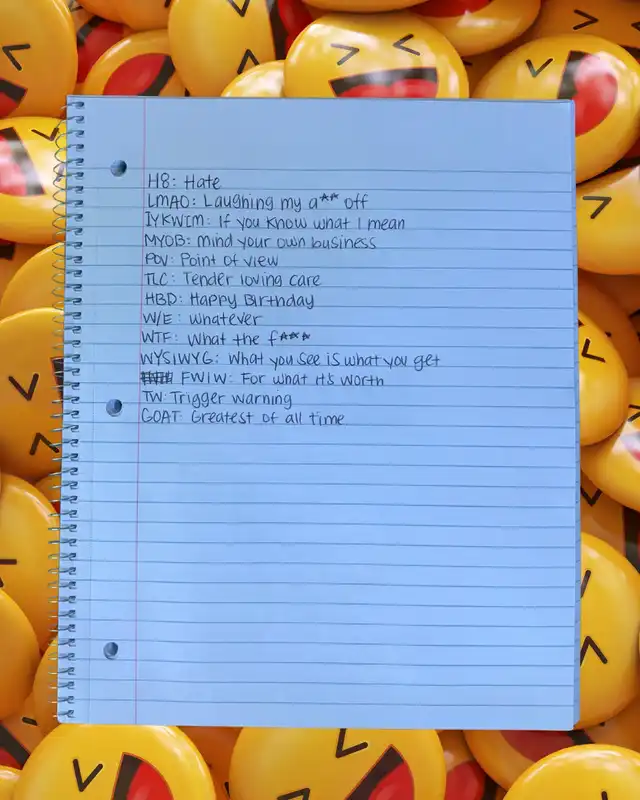 H8: Hate
LMAO: Laughing my a** off
IYKWIM: If you know what I mean
MYOB: mind your own business
POV: Point of view
TLC: Tender loving care
HBD: Happy Birthday
W/E: whatever
WTF: What the f***
WYSIWYG: What you see is what you get
FWIW: For what it's worth
TW: Trigger warning
GOAT: Greatest of all time